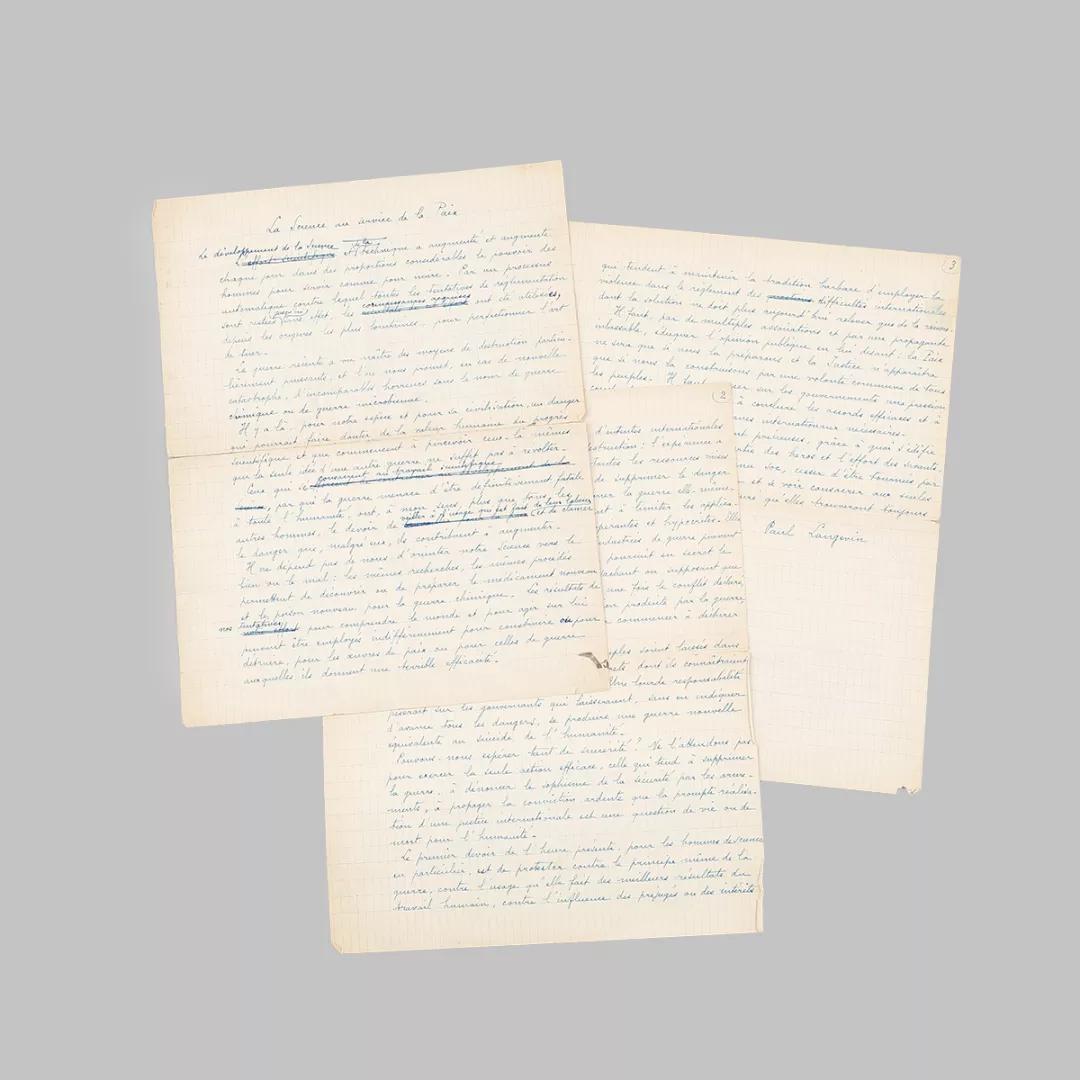 La Science au service de la Paix
Le développement de la Science
L'effort scientifique et la technique a augmenté et augmente
chaque jour dans des proportions considérables le pouvoir des
hommes pour servir comme pour nuire. Par un processus
automatique contre lequel toutes les tentatives de réglementation
connaissances acquises
sont restées sans effet, les résultats de ont été utilisées,
depuis les origines les plus lointaines, pour perfectionner l'art
de tuer.
La guerre récente a vu naître des moyens de destruction particu-
lièrement puissants, et l'on nous promet, en cas de nouvelle
catastrophe, d'incomparables horreurs sous le nom de guerre
chimique ou de guerre microbienne.
Il y a là, pour notre espèce et pour sa civilisation, un danger
qui pourrait faire douter de la valeur humaine du progrès
scientifique et que commencent à percevoir ceux-là mêmes
que la seule idée d'une autre guerre ne suffit pas à révolter.
Ceux qui se consacrent au travail scientifique
par qui la guerre menace d'être définitivement fatale
à toute l'humanité, ont, à mon sens, plus que tous les
veiller à l'usage qui est fait de leur labeur
autres hommes, le devoir de et de clamer
le danger que, malgré eux, ils contribuent à augmenter.
Il ne dépend pas de nous d'orienter notre Science vers le
bien ou le mal : les mêmes recherches, les mêmes procédés
permettent de découvrir ou de préparer le médicament nouveau
et le poison nouveau pour la guerre chimique. Les résultats de
nos tentatives pour comprendre le monde et pour agir sur lui
peuvent être employés indifféremment pour construire ou pour
détruire, pour les œuvres de paix ou pour celles de guerre
auxquelles ils donnent une terrible efficacité.
2
d'ententes internationales
destruction : l'expérience a
toutes les ressources mises
de supprimer le danger
la guerre elle-même.
et à limiter les applica-
et hypocrites. Elle
industries de guerre peuvent
poursuit en secret le
ou supposant que
une fois le conflit déclaré,
produite par la guerre
commencer à déchirer
peuples soient laissés dans
dont ils connaîtraient
Une lourde responsabilité
pèserait sur les gouvernants qui laisseraient, sans en indiquer
d'avance tous les dangers, se produire une guerre nouvelle
équivalente au suicide de l'humanité.
Pouvons-nous espérer tant de sincérité ? Ne l'attendons pas
pour exercer la seule action efficace, celle qui tend à supprimer
la guerre, à dénoncer le sophisme de la sécurité par les arme-
ments, à propager la conviction ardente que la prompte réalisa-
tion d'une justice internationale est une question de vie ou de
mort pour l'humanité.
Le premier devoir de l'heure présente, pour les hommes de science
en particulier, est de protester contre le principe même de la
guerre, contre l'usage qu'elle fait des meilleurs résultats du
travail humain, contre l'influence des préjugés ou des intérêts
3
qui tendent à maintenir la tradition barbare d'employer la
violence dans le règlement des questions difficultés internationales
dont la solution ne doit plus aujourd'hui relever que de la raison.
Il faut, par de multiples associations et par une propagande
inlassable, éduquer l'opinion publique en lui disant : la Paix
ne sera que si nous la préparons et la Justice n'apparaîtra
que si nous la construisons par une volonté commune de tous
les peuples. Il faut
sur les gouvernements une pression
à conclure les accords efficaces et à
internationaux nécessaires.
grâce à quoi s'édifie
des héros et l'effort des savants.
soc, cesser d'être tournées par
et à voir consacrer aux seules
qu'elles trouveront toujours
Paul Langevin